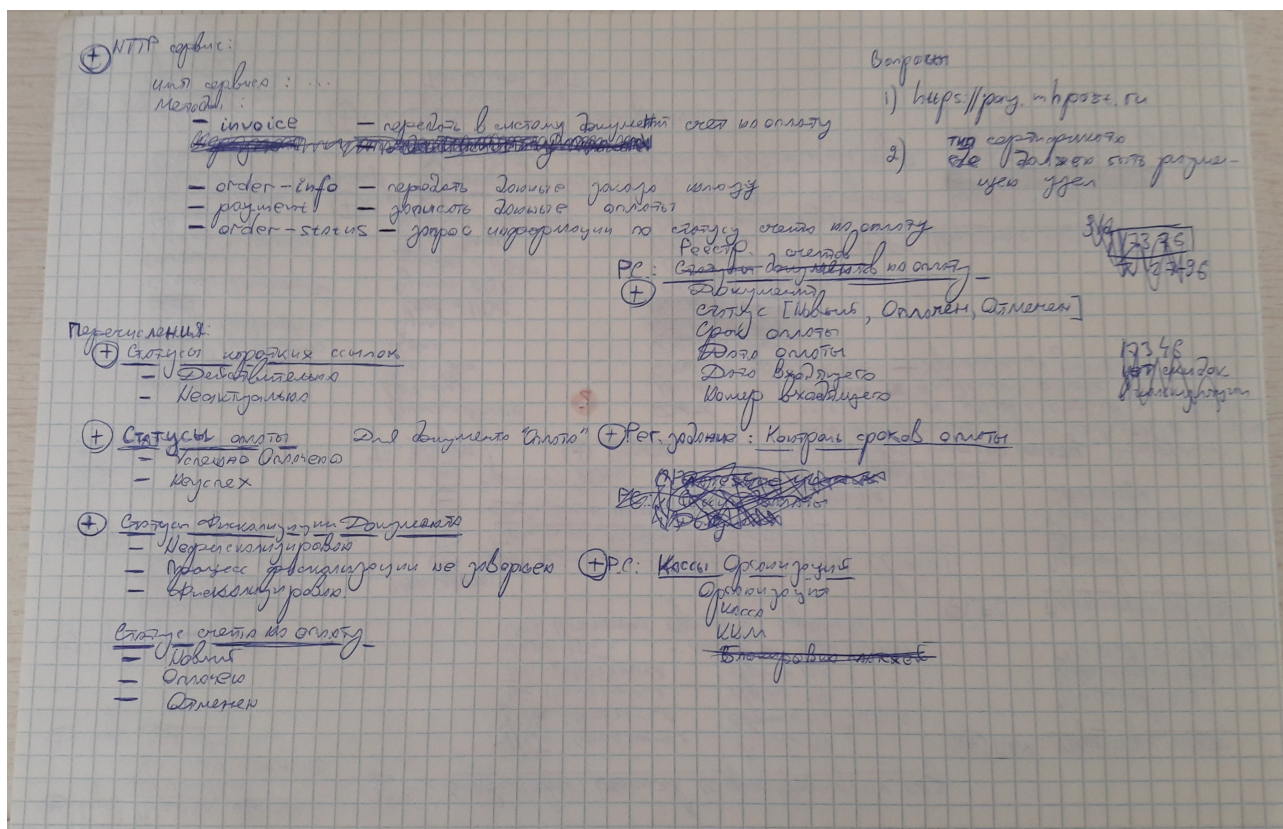 HTTP сервис:
имя сервиса : ...
Методы :
— invoice — передать в систему документ счет на оплату
— order-info — передать данные заказа шлюзу
— payment — записать данные оплаты
— order-status — запрос информации по статусу счета на оплату
Вопросы
1) https://pay.mhpost.ru
2) тип сертификата
где должен быть разме-
щен узел
Реестр счетов
Р.С.: на оплату
Документ
Статус [Новый, Оплачен, Отменен]
Срок оплаты
Дата оплаты
Дата входящего
Номер входящего
Перечисления:
Статусы коротких ссылок
— Действительна
— Неактуальна
Статусы оплаты Для документа "Оплата"
— Успешно Оплачена
— Неуспех
Рег. задание : Контроль сроков оплаты
Статусы Фискализации Документа
— Нефискализирован
— Процесс фискализации не завершен
— Фискализирован
Р.С: Кассы Организаций
Организация
Касса
ККМ
Статус счета на оплату
— Новый
— Оплачен
— Отменен